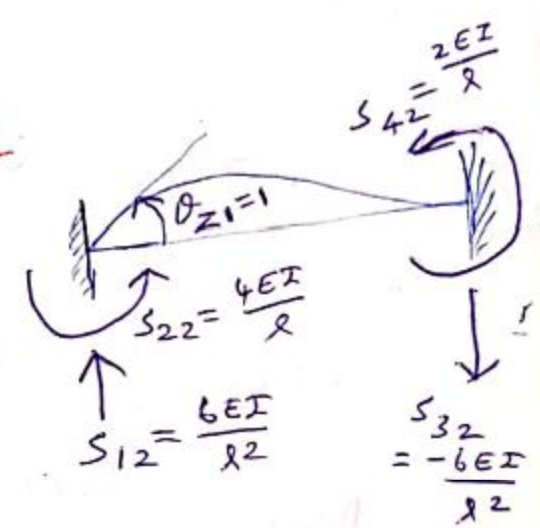 S42 = 2EI/l
θZ1=1
S22 = 4EI/l
S12 = 6EI/l2
S32
= -6EI/l2